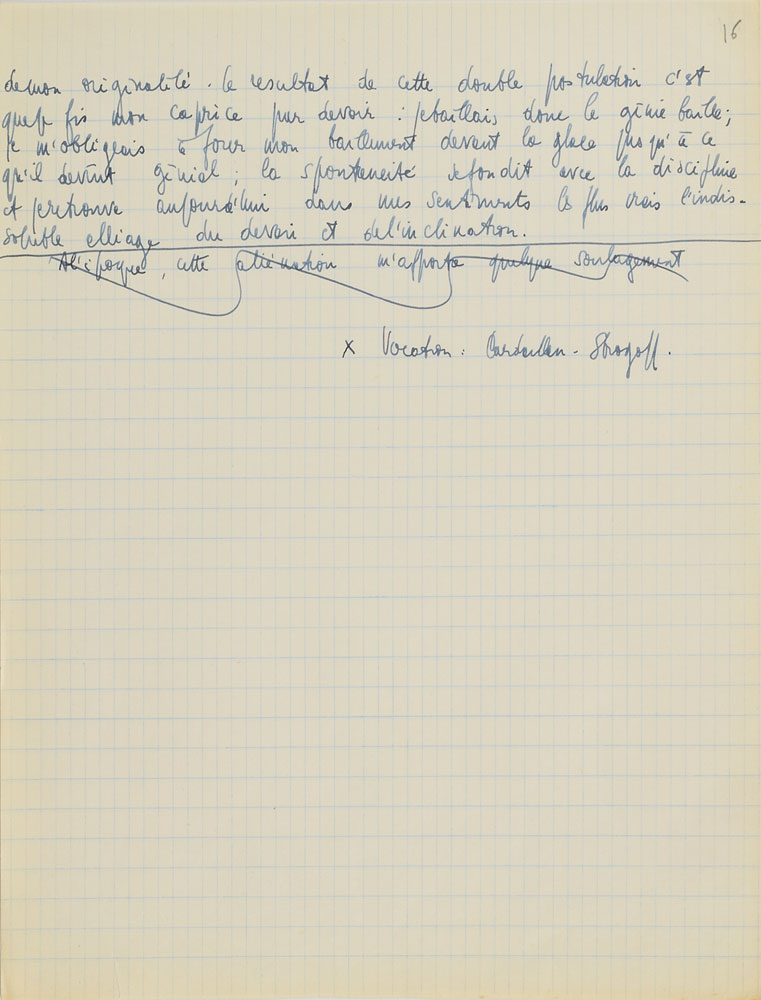 16
de mon originalité. Le resultat de cette double postulation c'est
que je fis mon caprice par devoir : je baillais donc le génie baille ;
je m'obligeais à jouer mon baillement devant la glace jusqu'à ce
qu'il devînt génial ; la spontanéité se fondit avec la discipline
et je retrouve aujourd'hui dans mes sentiments les plus vrais l'indis-
soluble alliage du devoir et de l'inclination.
A l'époque, cette aliénation m'apporta quelque soulagement
x Vocation : Pardaillan - Strogoff.